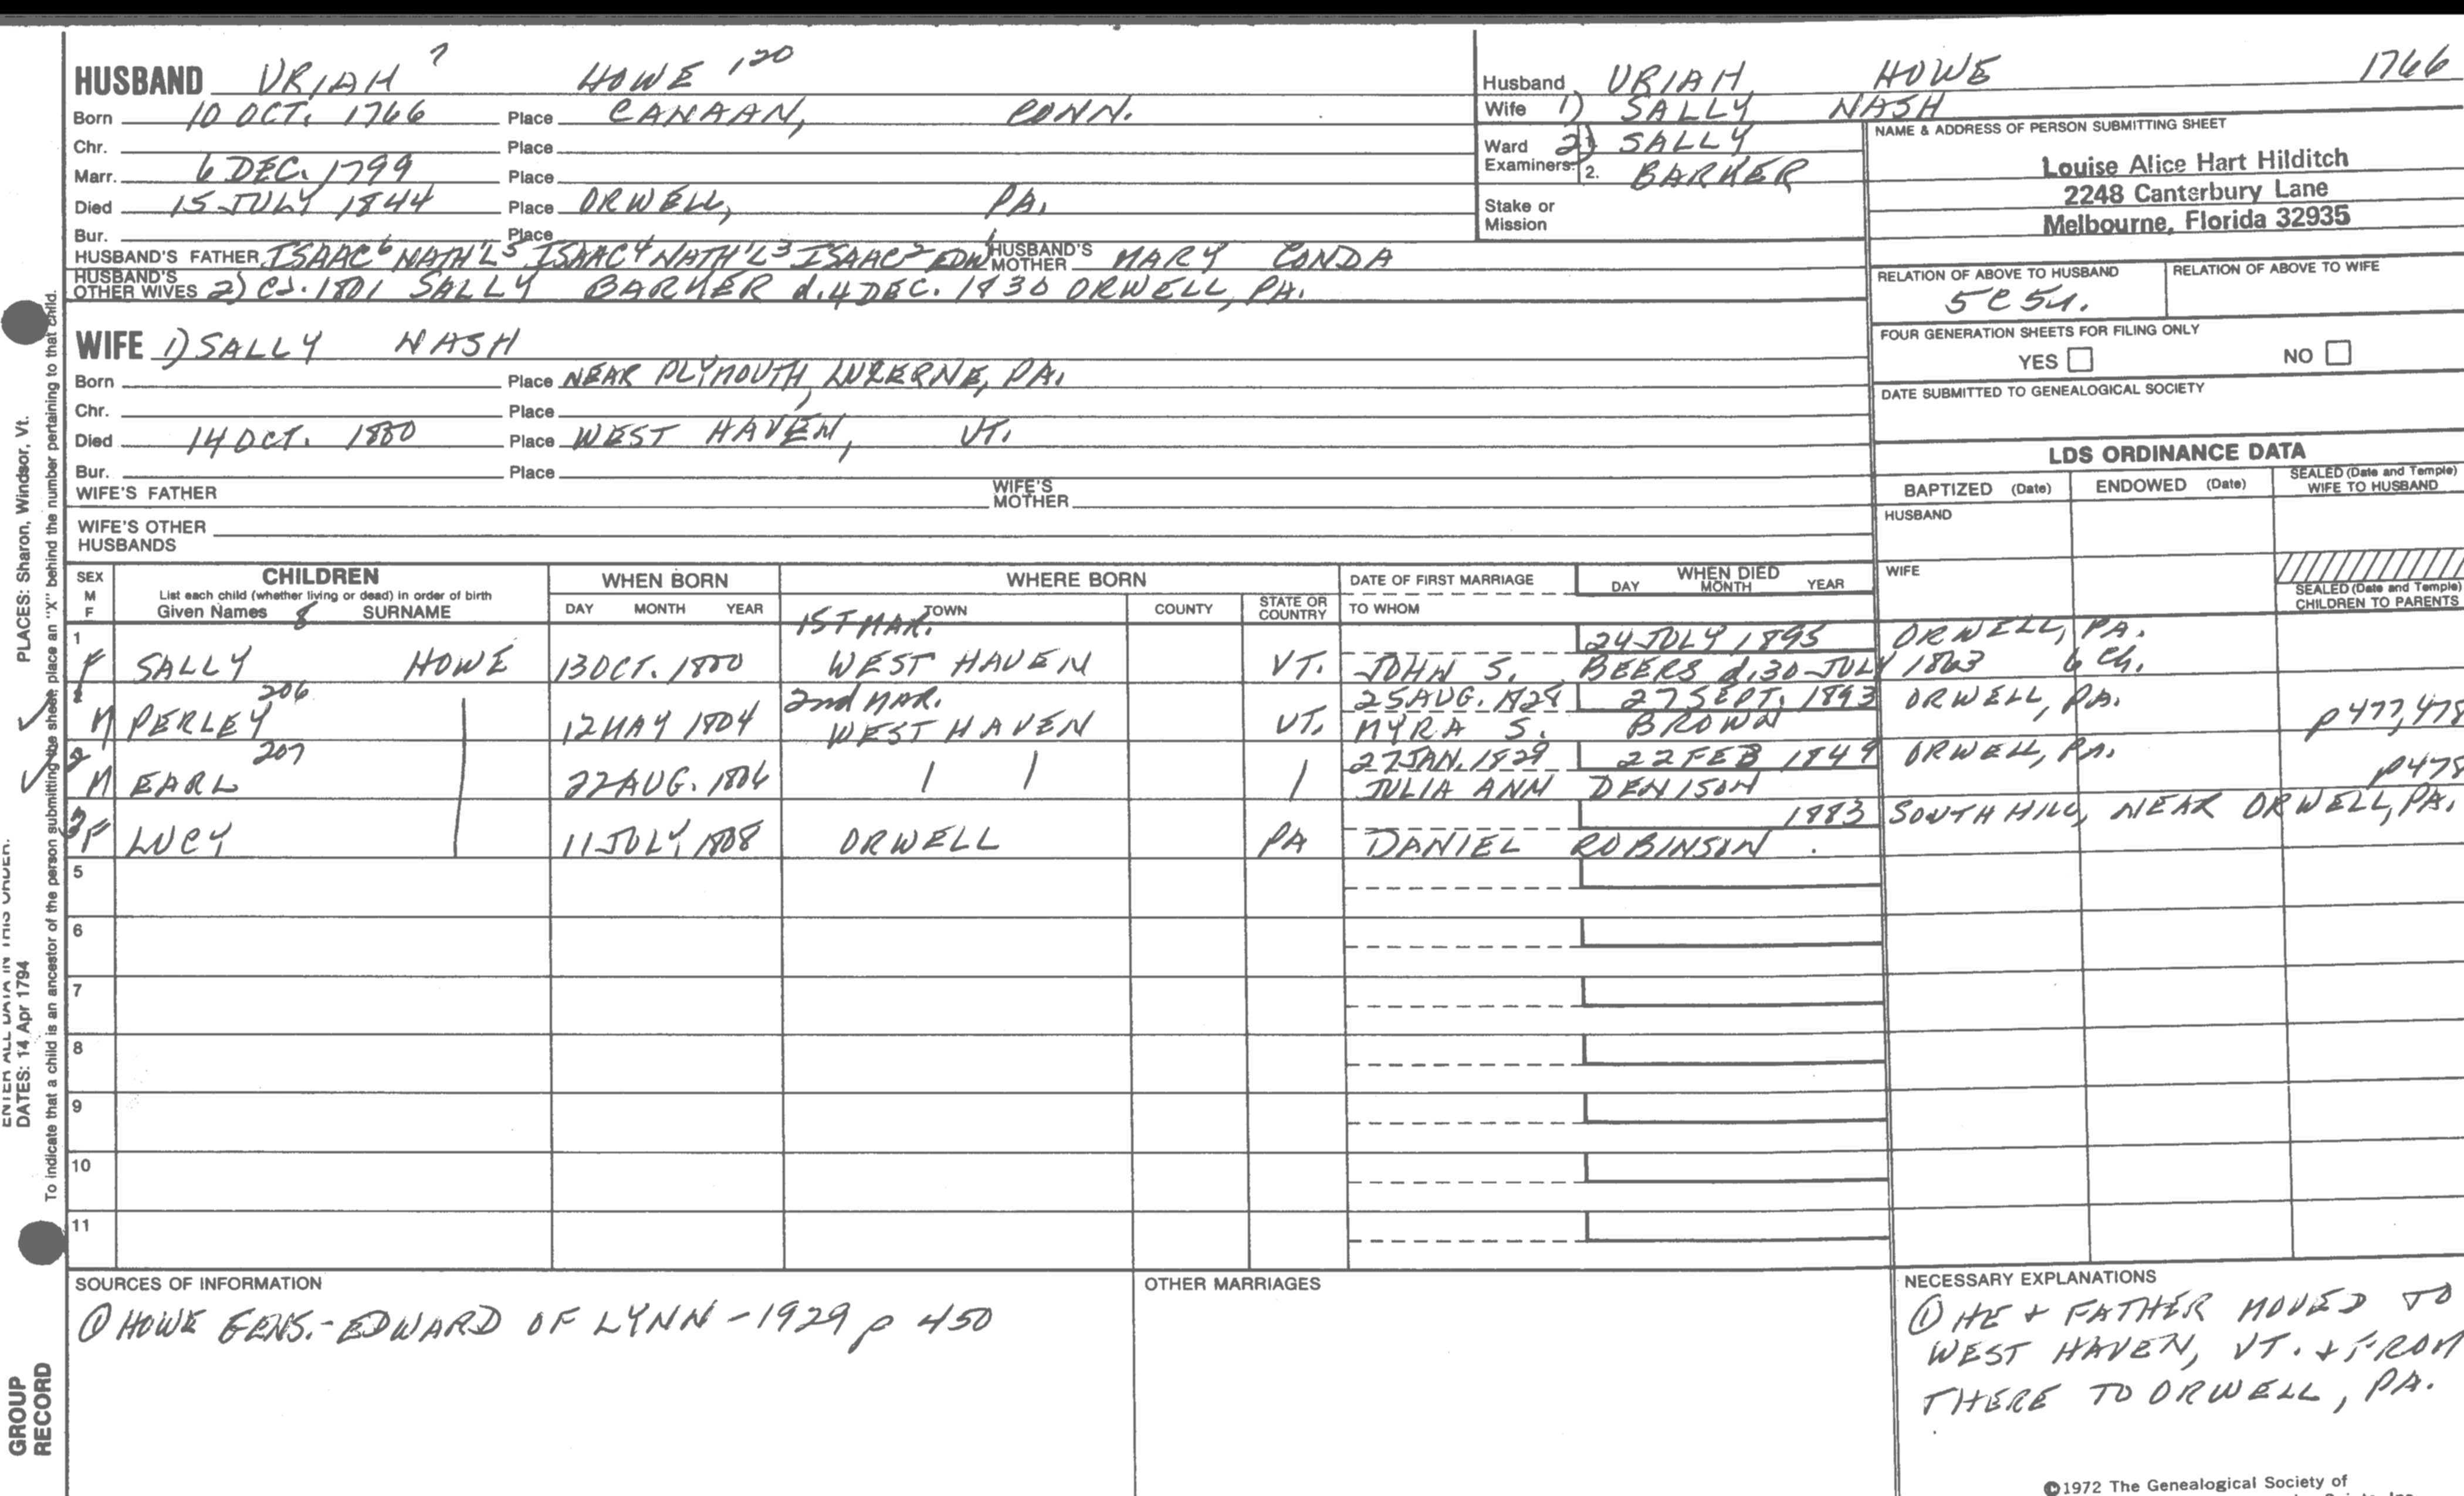 HUSBAND URIAH 7 HOWE 120
Born 10 OCT. 1766 Place CANAAN, CONN.
Chr. Place
Marr. 6 DEC. 1799 Place
Died 15 JULY 1844 Place ORWELL, PA.
Bur. Place
HUSBAND'S FATHER ISAAC6 NATH'L5 ISAAC4 NATH'L3 ISAAC2 EDW1 HUSBAND'S MOTHER MARY CONDA
HUSBAND'S OTHER WIVES 2) ca. 1801 SALLY BARKER d. 4 DEC. 1830 ORWELL, PA.
WIFE 1) SALLY NASH
Born Place NEAR PLYMOUTH, LUZERNE, PA.
Chr. Place
Died 14 OCT. 1800 Place WEST HAVEN, VT.
Bur. Place
WIFE'S FATHER WIFE'S MOTHER
WIFE'S OTHER HUSBANDS
Husband URIAH HOWE 1766
Wife 1) SALLY NASH
Ward 2) SALLY
Examiners: 1.
2. BARKER
Stake or Mission
NAME & ADDRESS OF PERSON SUBMITTING SHEET
Louise Alice Hart Hilditch
2248 Canterbury Lane
Melbourne, Florida 32935
RELATION OF ABOVE TO HUSBAND RELATION OF ABOVE TO WIFE
5C5r.
FOUR GENERATION SHEETS FOR FILING ONLY
YES NO
DATE SUBMITTED TO GENEALOGICAL SOCIETY
LDS ORDINANCE DATA
BAPTIZED (Date) ENDOWED (Date) SEALED (Date and Temple) WIFE TO HUSBAND
HUSBAND
WIFE
SEALED (Date and Temple) CHILDREN TO PARENTS
SEX M F CHILDREN WHEN BORN WHERE BORN DATE OF FIRST MARRIAGE WHEN DIED
List each child (whether living or dead) in order of birth
Given Names 8 SURNAME DAY MONTH YEAR TOWN COUNTY STATE OR COUNTRY TO WHOM DAY MONTH YEAR
1 1ST MAR. 24 JULY 1895 ORWELL, PA.
F SALLY HOWE 13 OCT. 1800 WEST HAVEN VT. JOHN S. BEERS d. 30 JULY 1863 6 ch.
1 206 2nd MAR. 25 AUG. 1828 27 SEPT. 1893 ORWELL, PA.
M PERLEY 12 MAY 1804 WEST HAVEN VT. MYRA S. BROWN p477,478
2 207 27 JAN. 1829 22 FEB 1849 ORWELL, PA.
M EARL 22 AUG. 1806 | | | JULIA ANN DENISON p478
3 1883 SOUTH HILL, NEAR ORWELL, PA.
F LUCY 11 JULY 1808 ORWELL PA DANIEL ROBINSON
5
6
7
8
9
10
11
SOURCES OF INFORMATION
① HOWE GENS.-EDWARD OF LYNN - 1929 p 450
OTHER MARRIAGES
NECESSARY EXPLANATIONS
① HE + FATHER MOVED TO
WEST HAVEN, VT. + FROM
THERE TO ORWELL, PA.
©1972 The Genealogical Society of
PLACES: Sharon, Windsor, Vt.
ENTER ALL DATA IN THIS ORDER:
DATES: 14 Apr 1794
To indicate that a child is an ancestor of the person submitting the sheet, place an "X" behind the number pertaining to that child.
GROUP
RECORD